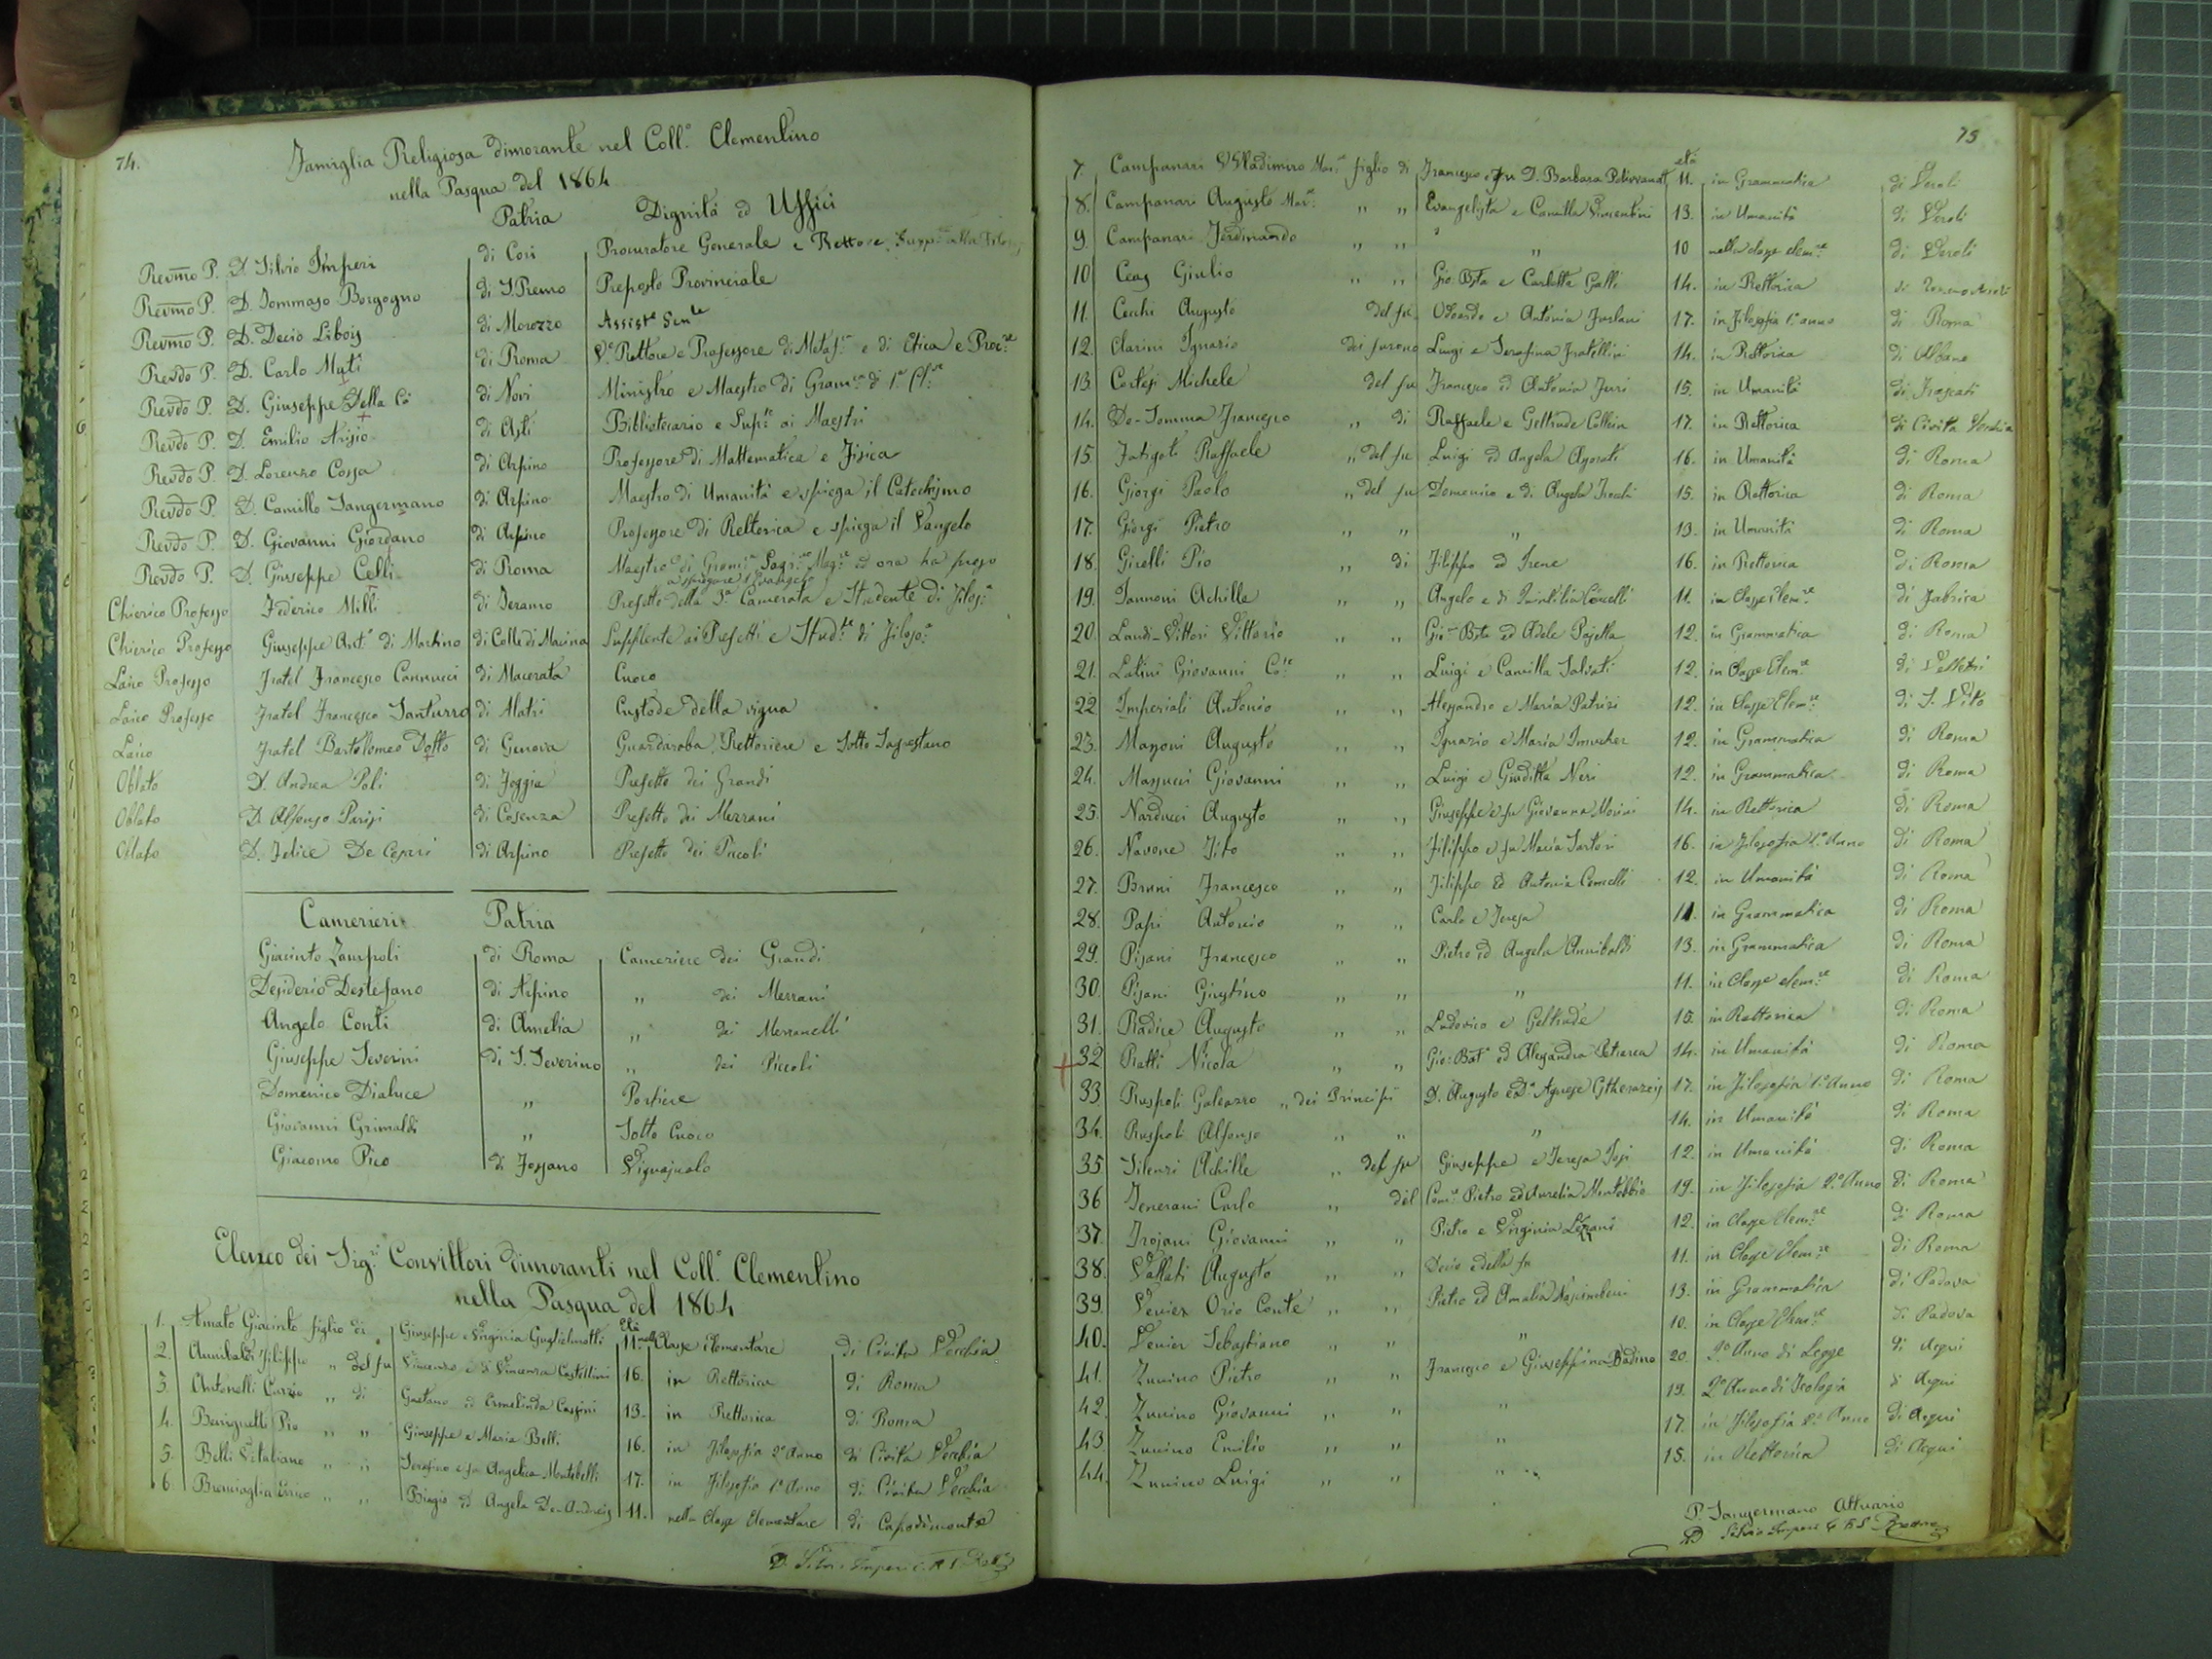 74.
Famiglia Religiosa dimorante nel Coll.º Clementino
nella Pasqua del 1864
Patria Dignità ed Uffici
Revmo P. D. Silvio Imperi di Cori Procuratore Generale e Rettore,
Revmo P. D. Tommaso Borgogno di S. Remo Preposto Provinciale
Revmo P. D. Decio Libois di Morozzo Assiste Genle
Revdo P. D. Carlo Muti di Roma V.e Rettore e Professore di Metaf.ca e di Etica e Proc.re
Revdo P. D. Giuseppe Della Cò di Novi Ministro e Maestro di Gram.ca di 1.a Cl.se
Revdo P. D. Emilio Arisio di Asti Bibliotecario e Sup.te ai Maestri
Revdo P. D. Lorenzo Cossa di Arpino Professore di Mattematica e Fisica
Revdo P. D. Camillo Sangermano di Arpino Maestro di Umanità e spiega il Catechismo
Revdo P. D. Giovanni Giordano di Arpino Professore di Rettorica e spiega il Vangelo
Revdo P. D. Giuseppe Celli di Roma Maestro di Gram.ca ed ora ha preso
a spiegare l'Evangelo
Chierico Professo Federico Milli di Teramo Prefetto della 3.a Camerata e Studente di Filos.a
Chierico Professo Giuseppe Ant.º di Martino di Colle di Macina Supplente ai Prefetti e Stud.te di Filoso.a
Laico Professo Fratel Francesco Cannucci di Macerata Cuoco
Laico Professo Fratel Francesco Santurro di Alatri Custode della vigna
Laico Fratel Bartolomeo Dotto di Genova Guardaroba, Rettoriere e Sotto Sagrestano
Oblato D. Andrea Poli di Foggia Prefetto dei Grandi
Oblato D. Alfonso Parisi di Cosenza Prefetto dei Mezzani
Oblato D. Felice De Cesari di Arpino Prefetto dei Piccoli
Camerieri Patria
Giacinto Zampoli di Roma Cameriere dei Grandi
Desiderio Destefano di Arpino „ dei Mezzani
Angelo Conti di Amelia „ dei Mezzanelli
Giuseppe Severini di S. Severino „ dei Piccoli
Domenico Dialuce „ Portiere
Giovanni Grimaldi „ Sotto Cuoco
Giacomo Pico di Fossano Vignajuolo
Elenco dei Sig.ri Convittori dimoranti nel Coll.º Clementino
nella Pasqua del 1864
Età
1. Amato Giacinto figlio di Giuseppe e Virginia Guglielmotti 11. nella Classe elementare di Civita Vecchia
2. Annibaldi Filippo „ del fu Vincenzo e di Vincenza Castellini 16. in Rettorica di Roma
3. Antonelli Curzio „ di Gaetano ed Ermelinda Cassini 13. in Rettorica di Roma
4. Benignetti Pio „ „ Giuseppe e Maria Belli 16. in Filosofia 2º Anno di Civita Vecchia
5. Belli Vitaliano „ „ Serafino e fu Angelica Montebelli 17. in Filosofia 1º Anno di Civita Vecchia
6. Brenciaglia Enrico „ „ Biagio ed Angela De-Andreis 11. nella Classe Elementare di Capodimonte
D. Silvio Imperi C.R.S. Rett.e
75
età
7. Campanari Wladimiro Mar.se figlio di Francesco e fu D. Barbara 11. in Grammatica di Veroli
8. Campanari Augusto Mar.se „ „ Evangelista e Camilla Vincentini 13. in Umanità di Veroli
9. Campanari Ferdinando „ „ „ „ 10 nella classe elem.re di Veroli
10 Ceas Giulio „ „ Gio. Bta e Carlotta Galli 14. in Rettorica di
11. Cecchi Augusto del fu Odoardo e Antonia Furlani 17. in Filosofia 1º anno di Roma
12. Clarini Ignazio dei furono Luigi e Serafina Fratellini 14. in Rettorica di Albano
13. Cortesi Michele del fu Francesco ed Antonia Juri 15. in Umanità di Frascati
14. De-Somma Francesco „ di Raffaele e Geltrude Collein 17. in Rettorica di Civita Vecchia
15. Fatigati Raffaele „ del fu Luigi ed Angela Agorati 16. in Umanità di Roma
16. Giorgi Paolo „ del fu Domenico e di Angela 15. in Rettorica di Roma
17. Giorgi Pietro „ „ „ 13. in Umanità di Roma
18. Girelli Pio „ di Filippo ed Irene 16. in Rettorica di Roma
19. Jannoni Achille „ „ Angelo e di Quintilia 11. in Classe Elem.re di Fabrica
20. Landi-Vittori Vittorio „ „ Gio-Bta ed Adele Pajella 12. in Grammatica di Roma
21. Latini Giovanni Co.te „ „ Luigi e Camilla Salvati 12. in Classe Elem.re di Velletri
22 Imperiali Antonio „ „ Alessandro e Maria Patrizi 12. in Classe Elem.re di S. Vito
23. Mazzoni Augusto „ „ Ignazio e Maria 12. in Grammatica di Roma
24. Massucci Giovanni „ „ Luigi e Giuditta Neri 12. in Grammatica di Roma
25. Narducci Augusto „ „ Giuseppe e fu Giovanna Morini 14. in Rettorica di Roma
26. Navone Tito „ „ Filippo e fu Maria Sartori 16. in Filosofia 1º Anno di Roma
27. Bruni Francesco „ „ Filippo ed Antonia 12. in Umanità di Roma
28. Papi Antonio „ „ Carlo e Teresa 11. in Grammatica di Roma
29. Pisani Francesco „ „ Pietro ed Angela Annibaldi 13. in Grammatica di Roma
30. Pisani Giustino „ „ „ 11. in Classe elem.re di Roma
31. Radice Augusto „ „ Ludovico e Geltrude 15. in Rettorica di Roma
+ 32 Ratti Nicola „ „ Gio: Bat.a ed Alessandra Petrarca 14. in Umanità di Roma
33 Ruspoli Galeazzo „ dei Principi D. Augusto e D.a Agnese Estherazeis 17. in Filosofia 1º Anno di Roma
34. Ruspoli Alfonso „ „ „ 14. in Umanità di Roma
35 Silenzi Achille „ del fu Giuseppe e Teresa 12. in Umanità di Roma
36 Tenerani Carlo „ del Com.re Pietro ed Aurelia Montobbio 19. in Filosofia 2º Anno di Roma
37. Trojani Giovanni „ „ Pietro e Virginia Lezzani 12. in Classe Elem.re di Roma
38. Vallati Augusto „ „ Decio e della fu 11. in Classe Elem.re di Roma
39. Venier Orio Conte „ „ Pietro ed Amalia 13. in Grammatica di Padova
40. Venier Sebastiano „ „ „ 10. in Classe Elem.re di Padova
41. Zunino Pietro „ „ Francesco e Giuseppina Badino 20. 3º Anno di Legge di Acqui
42. Zunino Giovanni „ „ „ 19. 2º Anno di Teologia di Acqui
43. Zunino Emilio „ „ „ 17. in Filosofia 2º Anno di Acqui
44. Zunino Luigi „ „ „ 15. in Rettorica di Acqui
P. Sangermano Attuario
D. Silvio Imperi C.R.S. Rettore